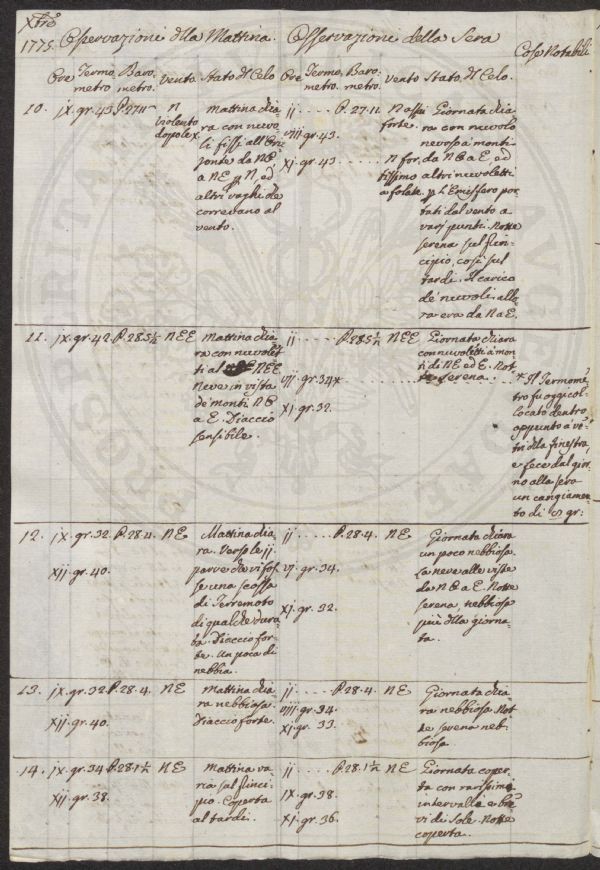 Xbre
1775. Osservazioni della Mattina. Osservazione della Sera Cose Notabili
Ore Termo, Baro, Vento Stato del Celo. Ore Termo, Baro, Vento Stato del Celo.
metro metro. metro. metro.
10. jx. gr. 43. P. 27 11 n
violento
dopo le x.
Mattina chia,
ra con nuvo,
li fissi all'Ori,
zonte da NO
a NE p N, ed
altri vaghi che
correvano al
vento.
ij . . . . P. 27. 11 N assai
forte.
VIII gr. 43.
XI. gr. 43. . . . . . N for,
tissimo
a folate.
Giornata chia,
ra con nuvolo
nevoso a monti
da NO a E, ed
altri nuvoletti
p l'Emisfero por,
tati dal vento a
varj punti. Notte
serena sul prin,
cipio, così sul
tardi. Il carico
de' nuvoli allo,
ra era da N a E.
11. jx. gr. 42. P. 28. 5½ NEE
Mattina chia,
ra con nuvolet,
ti al NEE
Neve in vista
de' monti NO
a E. Diaccio
sensibile.
ij P. 28 5½ NEE
VII. gr. 34*
XI. gr. 32.
Giornata chiara
con nuvoletti a mon,
ti di NE ed E. Not,
te serena.
* Il Termome,
tro fu oggi col,
locato dentro
appunto a ve,
tri della finestra,
e fece dal gior,
no alla sera
un cangiamen,
to di gr:
12. jx. gr. 32. P. 28. 4. NE
XII. gr. 40.
Mattina chia,
ra. Verso le ij
parve che vi fos,
se una scossa
di Terremoto
di qualche dura,
ta. Diaccio for,
te. Un poca di
nebbia.
ij . . . . P. 28. 4. NE
VI. gr. 34.
XI. gr. 32.
Giornata chiara
un poco nebbiosa.
La neve alle viste
da NO a E. Notte
serena, nebbiosa
più della giorna,
ta.
13. jx. gr. 32. P. 28. 4. NE
XII. gr. 40.
Mattina chia,
ra nebbiosa.
Diaccio forte.
ij . . . . P. 28. 4 NE
VIII. gr. 34.
XI. gr. 33.
Giornata chia,
ra nebbiosa. Not,
te serena neb,
biosa
14. jx. gr. 34. P. 28. 1½ NE
XII. gr. 38.
Mattina va,
ria sul princi,
pio. Coperta
al tardi.
ij . . . . P. 28. 1½ NE
IX. gr. 38.
XI. gr. 36.
Giornata coper,
ta con rarissimi
intervalli e bre,
vi di Sole. Notte
coperta.